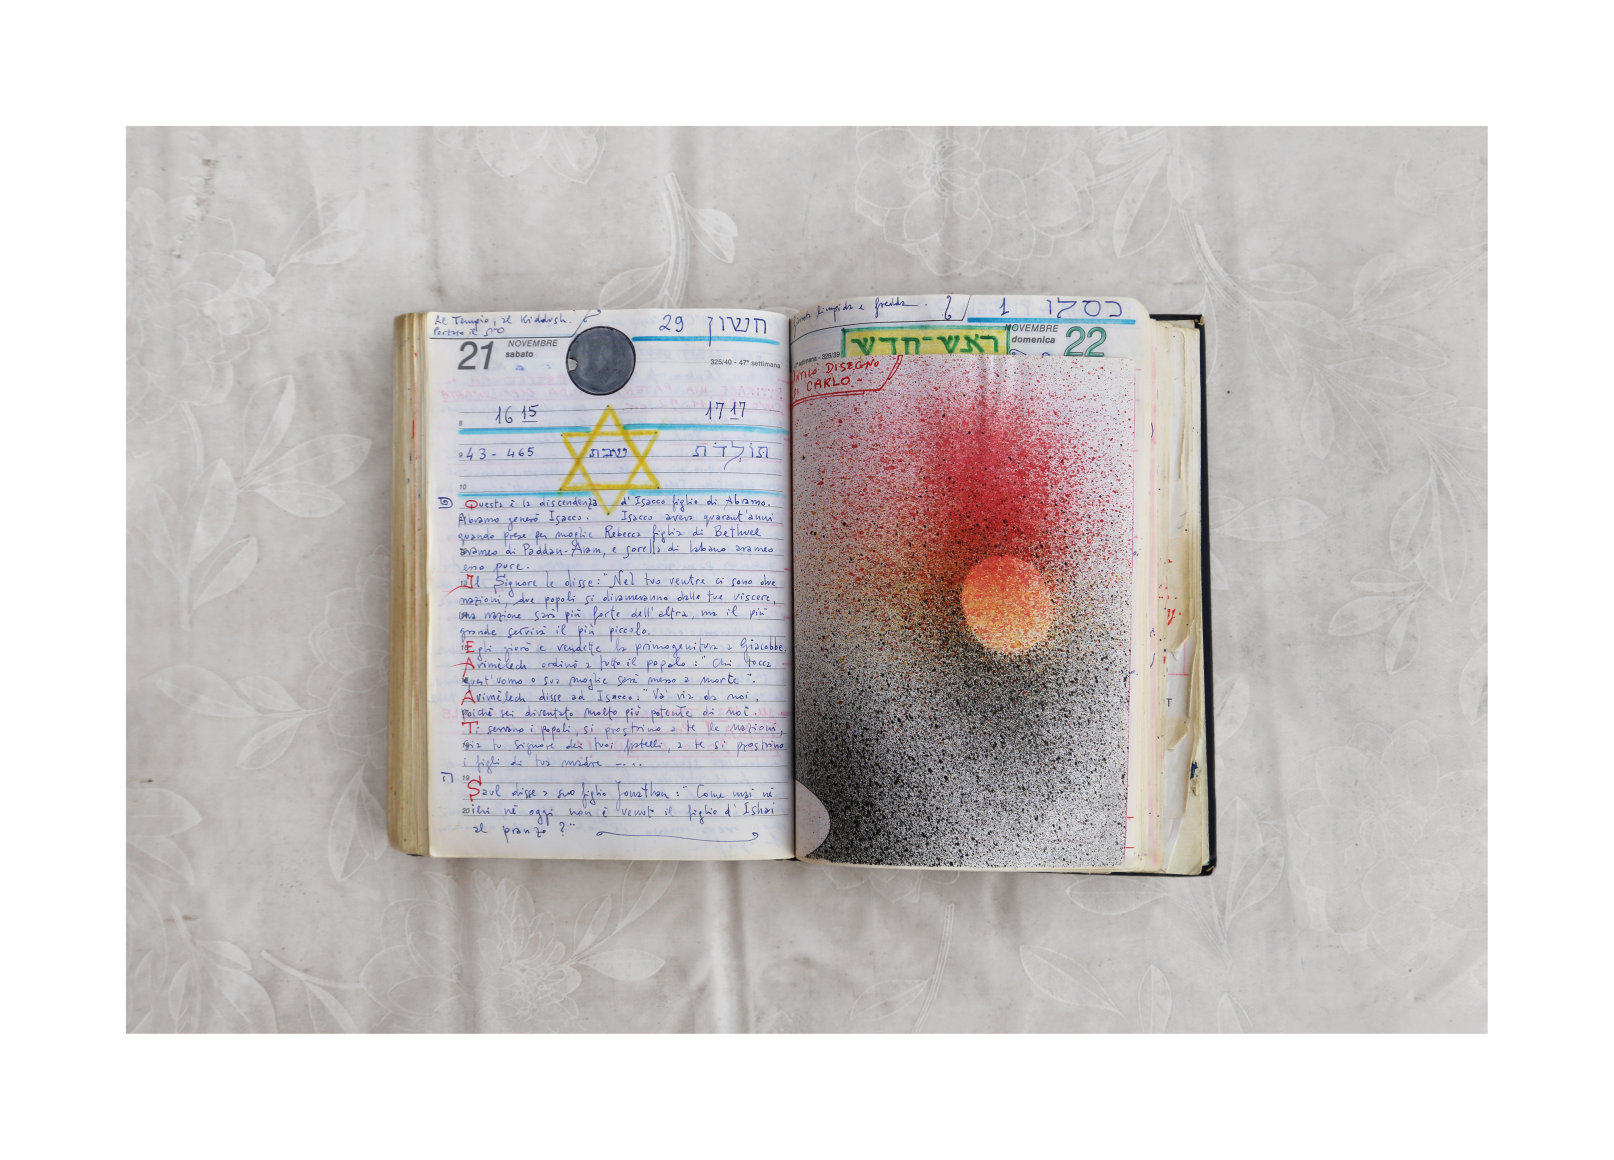 Al Tempio, al Kiddush.
Portare il
29 חשון
21 NOVEMBRE
sabato
325/40 - 47ª settimana
16 15
17 17
8
9 43 - 465
שבת
תולדת
10
פ
Questa è la discendenza d'Isacco figlio di Abramo.
Abramo generò Isacco. Isacco aveva quarant'anni
quando prese per moglie Rebecca figlia di Bethuel
arameo di Paddan-Aram, e sorella di Labano arameo
esso pure.
Il Signore le disse: "Nel tuo ventre ci sono due
nazioni, due popoli si dirameranno dalle tue viscere,
una nazione sarà più forte dell'altra, ma il più
grande servirà il più piccolo.
Egli giurò e vendette la primogenitura a Giacobbe.
Avimèlech ordinò a tutto il popolo: "Chi tocca
quest'uomo o sua moglie sarà messo a morte".
Avimèlech disse ad Isacco: "Va' via da noi,
poiché sei diventato molto più potente di noi.
Ti servano i popoli, si prostrino a te le nazioni,
sia tu Signore dei tuoi fratelli, a te si prostrino
i figli di tua madre ....
ה
19
Saul disse a suo figlio Jonathan: "Come mai né
20 ieri né oggi non è venuto il figlio d'Ishai
al pranzo?"
limpida e fredda.
1 כסלו
ראש-חדש
NOVEMBRE
domenica
22
settimana - 326/39
ANTICO DISEGNO
DI CARLO -